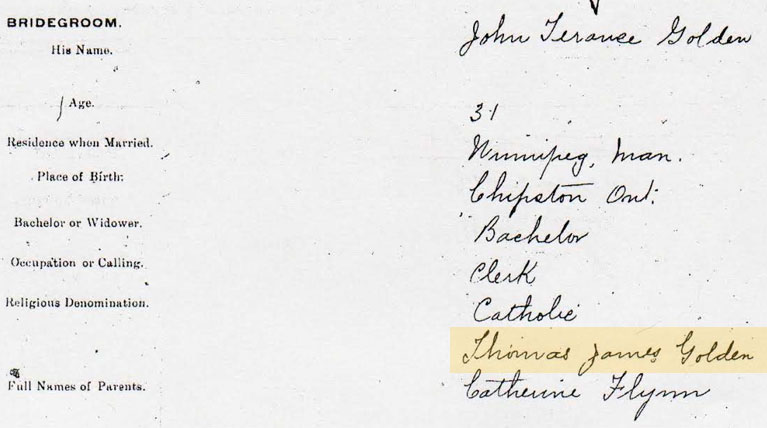 BRIDEGROOM.
His Name. John Terance Golden
Age. 31
Residence when Married. Winnipeg, Man.
Place of Birth: Chipston Ont.
Bachelor or Widower. Bachelor
Occupation or Calling. Clerk
Religious Denomination. Catholic
Thomas James Golden
Full Names of Parents. Catherine Flynn